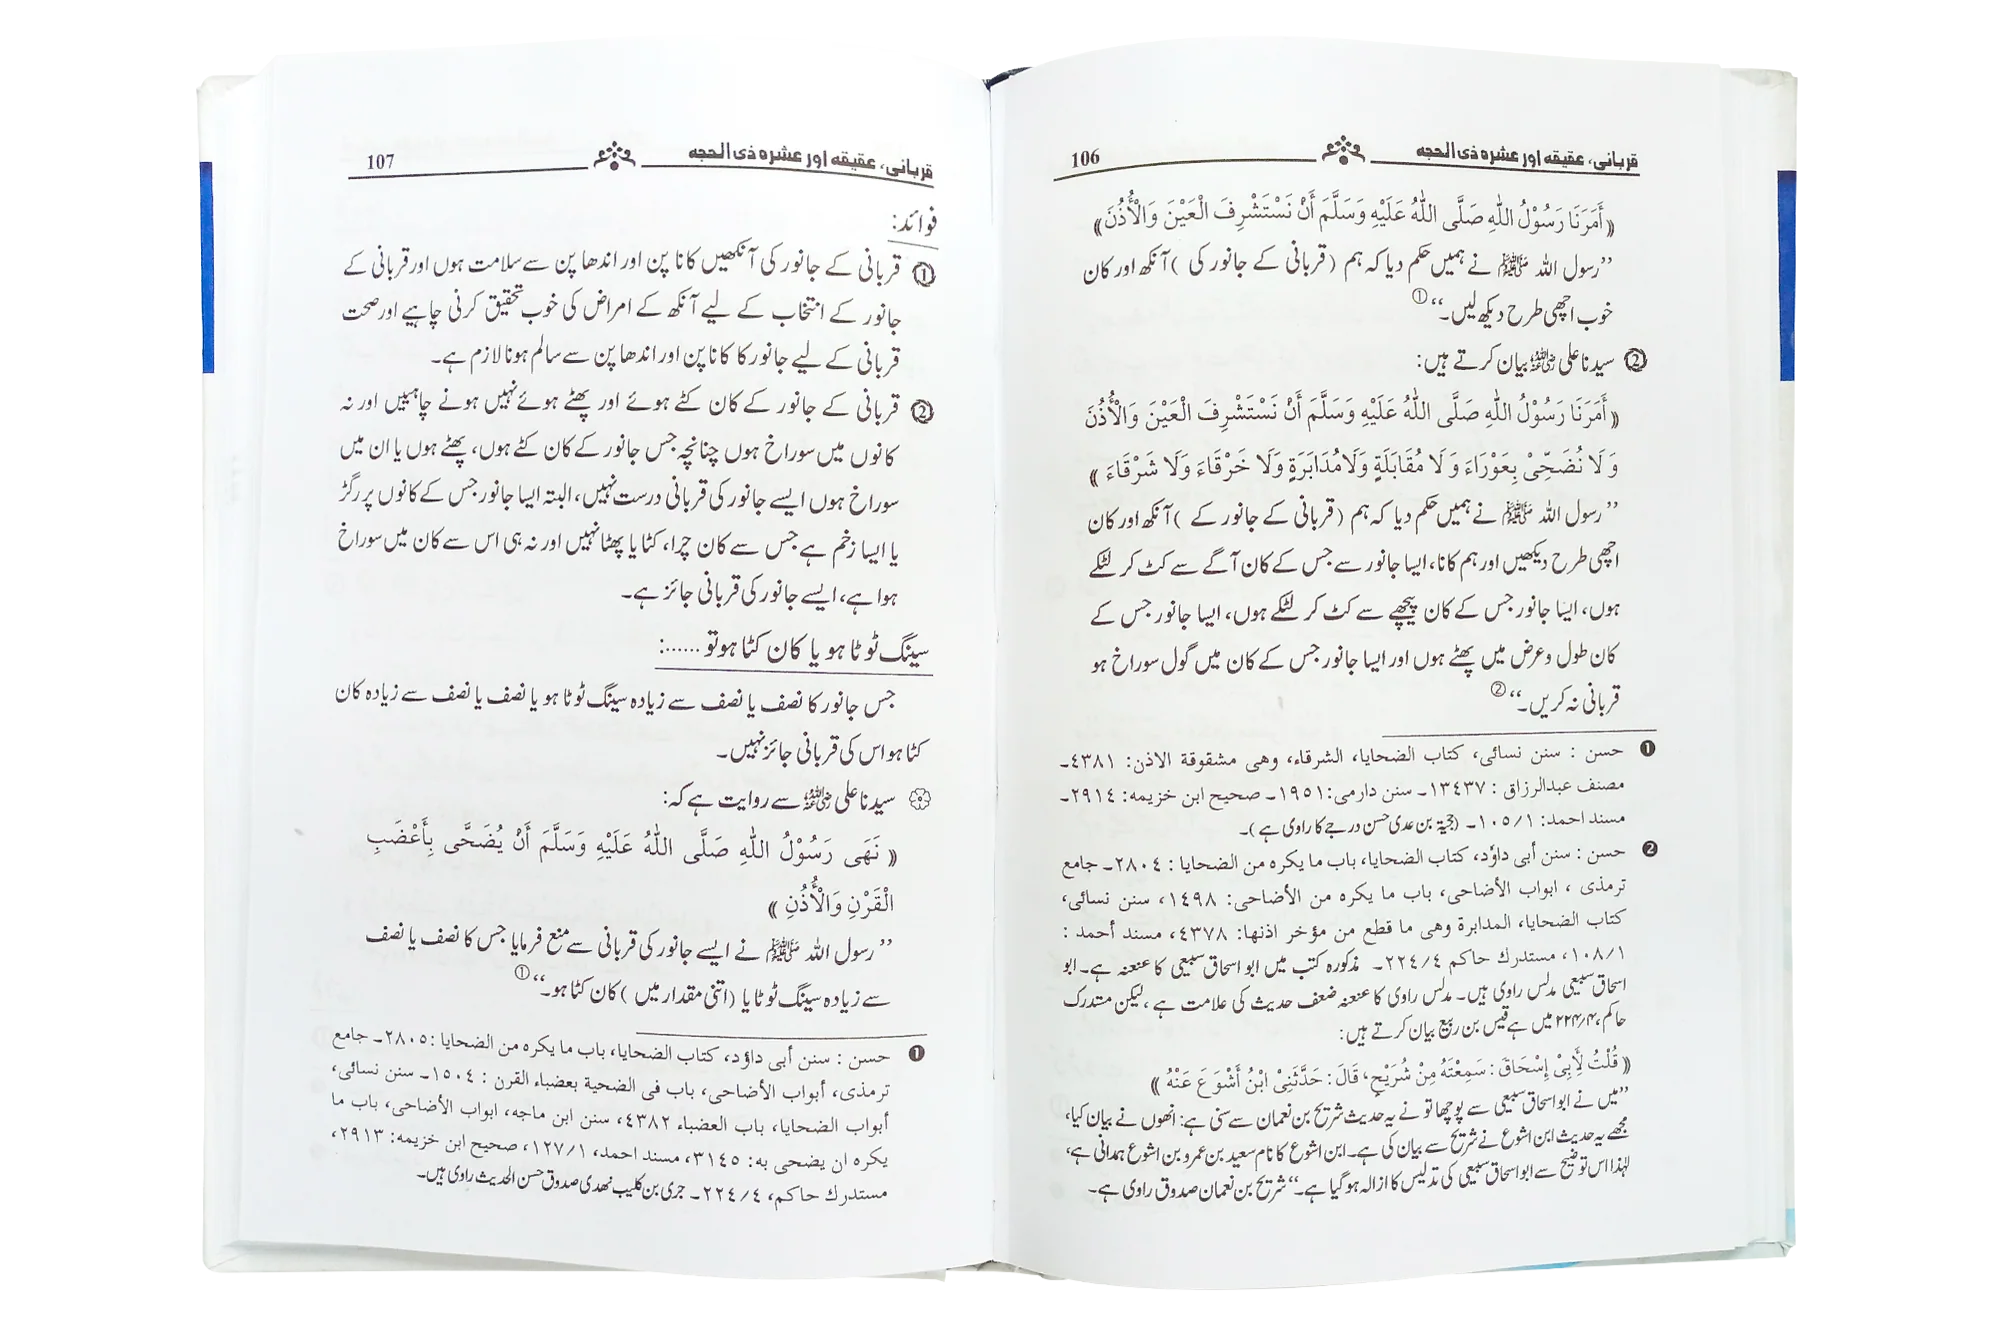 قربانی، عقیقہ اور عشرہ ذی الحجہ 106
﴿ أَمَرَنَا رَسُوْلُ اللهِ صَلَّى اللهُ عَلَيْهِ وَسَلَّمَ أَنْ نَسْتَشْرِفَ الْعَيْنَ وَالْأُذُنَ ﴾
’’رسول اللہ ﷺ نے ہمیں حکم دیا کہ ہم (قربانی کے جانور کی) آنکھ اور کان
خوب اچھی طرح دیکھ لیں۔‘‘①
② سیدنا علی رضی اللہ عنہ بیان کرتے ہیں:
﴿ أَمَرَنَا رَسُوْلُ اللهِ صَلَّى اللهُ عَلَيْهِ وَسَلَّمَ أَنْ نَسْتَشْرِفَ الْعَيْنَ وَالْأُذُنَ
وَلَا نُضَحِّيْ بِعَوْرَاءَ وَلَا مُقَابَلَةٍ وَلَا مُدَابَرَةٍ وَلَا خَرْقَاءَ وَلَا شَرْقَاءَ ﴾
’’رسول اللہ ﷺ نے ہمیں حکم دیا کہ ہم (قربانی کے جانور کے) آنکھ اور کان
اچھی طرح دیکھیں اور ہم کانا، ایسا جانور سے جس کے کان آگے سے کٹ کر لٹکے
ہوں، ایسا جانور جس کے کان پیچھے سے کٹ کر لٹکے ہوں، ایسا جانور جس کے
کان طول و عرض میں پھٹے ہوں اور ایسا جانور جس کے کان میں گول سوراخ ہو
قربانی نہ کریں۔‘‘②
❶ حسن : سنن نسائی، کتاب الضحایا، الشرقاء، وھی مشقوقة الاذن: ٤٣٨١۔
مصنف عبدالرزاق : ١٣٤٣٧۔ سنن دارمی: ١٩٥١۔ صحیح ابن خزیمہ: ٢٩١٤۔
مسند احمد: ١/١٠٥۔ (حجیۃ بن عدی حسن درجے کا راوی ہے)۔
❷ حسن : سنن أبی داؤد، کتاب الضحایا، باب ما یکرہ من الضحایا : ٢٨٠٤۔ جامع
ترمذی ، ابواب الأضاحی، باب ما یکرہ من الأضاحی: ١٤٩٨، سنن نسائی،
کتاب الضحایا، المدابرة وھی ما قطع من مؤخر اذنھا: ٤٣٧٨، مسند أحمد :
١/١٠٨، مستدرك حاکم ٤/٢٢٤۔ مذکورہ کتب میں ابو اسحاق سبیعی کا عنعنہ ہے۔ ابو
اسحاق سبیعی مدلس راوی ہیں۔ مدلس راوی کا عنعنہ ضعف حدیث کی علامت ہے، لیکن مستدرک
حاکم، ۲۲۴/۴ میں ہے قیس بن ربیع بیان کرتے ہیں:
﴿ قُلْتُ لِأَبِيْ إِسْحَاقَ : سَمِعْتَهُ مِنْ شُرَيْحٍ، قَالَ : حَدَّثَنِيْ ابْنُ أَشْوَعَ عَنْهُ ﴾
’’میں نے ابو اسحاق سبیعی سے پوچھا تو نے یہ حدیث شریح بن نعمان سے سنی ہے: انھوں نے بیان کیا،
مجھے یہ حدیث ابن اشوع نے شریح سے بیان کی ہے۔ ابن اشوع کا نام سعید بن عمرو بن اشوع ہمدانی ہے،
لہٰذا اس توضیح سے ابو اسحاق سبیعی کی تدلیس کا ازالہ ہو گیا ہے۔‘‘ شریح بن نعمان صدوق راوی ہے۔
قربانی، عقیقہ اور عشرہ ذی الحجہ 107
فوائد:
① قربانی کے جانور کی آنکھیں کانا پن اور اندھا پن سے سلامت ہوں اور قربانی کے
جانور کے انتخاب کے لیے آنکھ کے امراض کی خوب تحقیق کرنی چاہیے اور صحت
قربانی کے لیے جانور کا کانا پن اور اندھا پن سے سالم ہونا لازم ہے۔
② قربانی کے جانور کے کان کٹے ہوئے اور پھٹے ہوئے نہیں ہونے چاہییں اور نہ
کانوں میں سوراخ ہوں چنانچہ جس جانور کے کان کٹے ہوں، پھٹے ہوں یا ان میں
سوراخ ہوں ایسے جانور کی قربانی درست نہیں، البتہ ایسا جانور جس کے کانوں پر رگڑ
یا ایسا زخم ہے جس سے کان چرا، کٹا یا پھٹا نہیں اور نہ ہی اس سے کان میں سوراخ
ہوا ہے، ایسے جانور کی قربانی جائز ہے۔
سینگ ٹوٹا ہو یا کان کٹا ہو تو ......:
جس جانور کا نصف یا نصف سے زیادہ سینگ ٹوٹا ہو یا نصف یا نصف سے زیادہ کان
کٹا ہو اس کی قربانی جائز نہیں۔
سیدنا علی رضی اللہ عنہ سے روایت ہے کہ:
﴿ نَهَى رَسُوْلُ اللهِ صَلَّى اللهُ عَلَيْهِ وَسَلَّمَ أَنْ يُضَحَّى بِأَعْضَبِ
الْقَرْنِ وَالْأُذُنِ ﴾
’’رسول اللہ ﷺ نے ایسے جانور کی قربانی سے منع فرمایا جس کا نصف یا نصف
سے زیادہ سینگ ٹوٹا یا (اتنی مقدار میں) کان کٹا ہو۔‘‘①
❶ حسن : سنن أبی داؤد، کتاب الضحایا، باب ما یکرہ من الضحایا : ٢٨٠٥۔ جامع
ترمذی، أبواب الأضاحی، باب فی الضحیة بعضباء القرن : ١٥٠٤۔ سنن نسائی،
أبواب الضحایا، باب العضباء ٤٣٨٢، سنن ابن ماجه، ابواب الأضاحی، باب ما
یکرہ ان یضحی به: ٣١٤٥، مسند احمد، ١/١٢٧، صحیح ابن خزیمه: ٢٩١٣،
مستدرك حاکم، ٤/٢٢٤۔ جری بن کلیب نھدی صدوق حسن الحدیث راوی ہیں۔